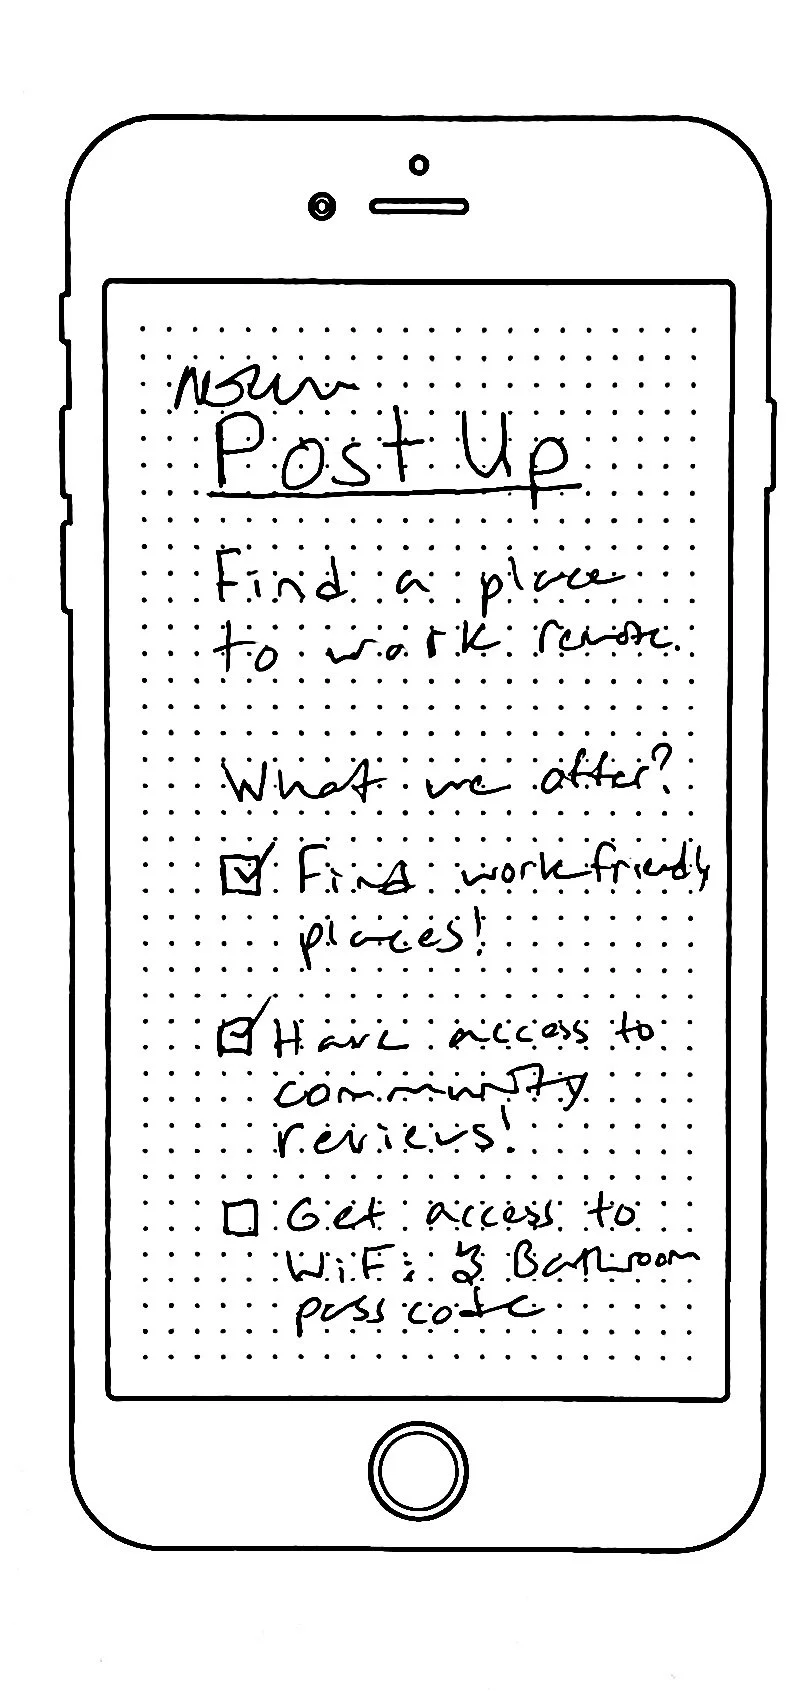 Post Up
Find a place
to work remote.
What we offer?
Find work friendly
places!
Have access to
community
reviews!
Get access to
WiFi & Bathroom
passcode